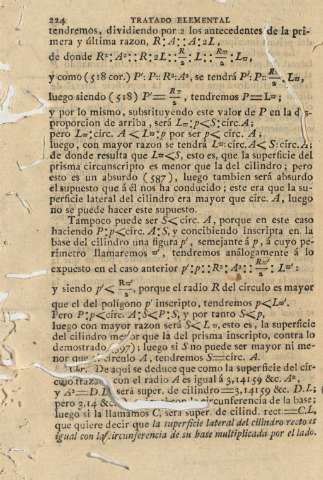 224 TRATADO ELEMENTAL
tendremos, dividiendo por 2 los antecedentes de la pri-
mera y última razon, R:A::A:2L,
de donde R²:A²::R:2L::R/2:L::
y como (518 cor.) P':P::R²:A², se tendrá P':P=
luego siendo (518) P'= tendremos P=L
y por lo mismo, substituyendo este valor de P en la
proporcion de arriba, será L p<S:circ. A;
pero L circ. A<L p por ser p< circ. A;
luego, con mayor razon se tendrá L circ. A<S:circ. A;
de donde resulta que <S, esto es, que la superficie del
prisma circunscripto es menor que la del cilindro; pero
esto es un absurdo (587), luego tambien será absurdo
el supuesto que á él nos ha conducido; este era que la su-
perficie lateral del cilindro era mayor que circ. A, luego
no se puede hacer este supuesto.
Tampoco puede ser S< circ. A, porque en este caso
haciendo P:p<circ. A:S, y concibiendo inscripta en la
base del cilindro una figura p', semejante á p, á cuyo pe-
rímetro llamaremos tendremos análogamente á lo
expuesto en el caso anterior p':p::R²:A²::
y siendo p'< porque el radio R del círculo es mayor
que el del poligono p' inscripto, tendremos p<L
Pero P:p<circ. A:S<P:S, y por tanto S<p,
luego con mayor razon será S<L esto es, la superficie
del cilindro que la del prisma inscripto, contra lo
demostrado luego si S no puede ser mayor ni me-
nor que círculo A, tendremos S=circ. A.
Cor. De aquí se deduce que como la superficie del cír-
culo trazado con el radio A es igual á 3,14159 &c. A²,
y A²=D.L, será super. de cilindro=3,14159 &c. D.L;
pero 3,14 &c. circunferencia de la base;
luego si la llamamos C, será super. de cilind. rect=C.L,
que quiere decir que la superficie lateral del cilindro recto es
igual con la circunferencia de su base multiplicada por el lado.